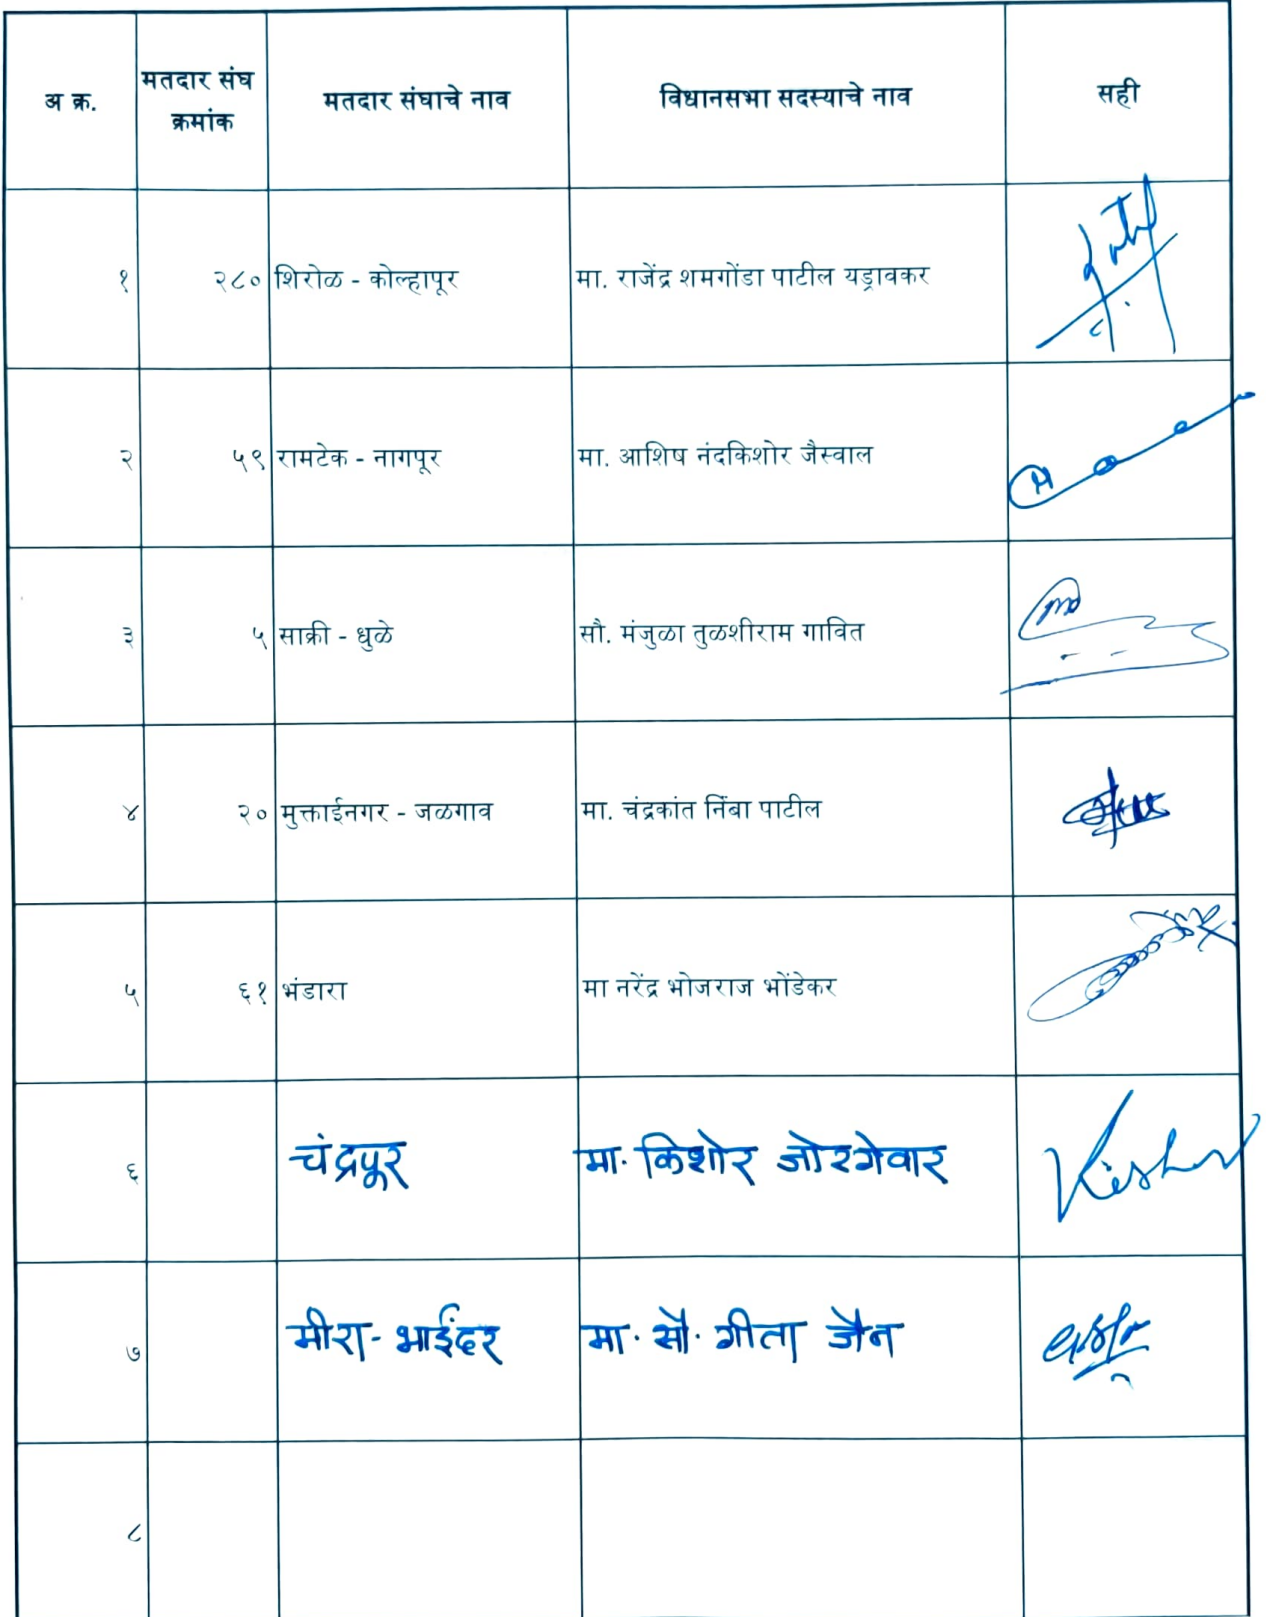 अ क्र. मतदार संघ क्रमांक मतदार संघाचे नाव विधानसभा सदस्याचे नाव सही
१ २८० शिरोळ - कोल्हापूर मा. राजेंद्र शमगोंडा पाटील यड्रावकर
२ ५९ रामटेक - नागपूर मा. आशिष नंदकिशोर जैस्वाल
३ ५ साक्री - धुळे सौ. मंजुळा तुळशीराम गावित
४ २० मुक्ताईनगर - जळगाव मा. चंद्रकांत निंबा पाटील
५ ६१ भंडारा मा नरेंद्र भोजराज भोंडेकर
६ चंद्रपूर मा. किशोर जोरगेवार Kishor
७ मीरा - भाईंदर मा. सौ. गीता जैन
८